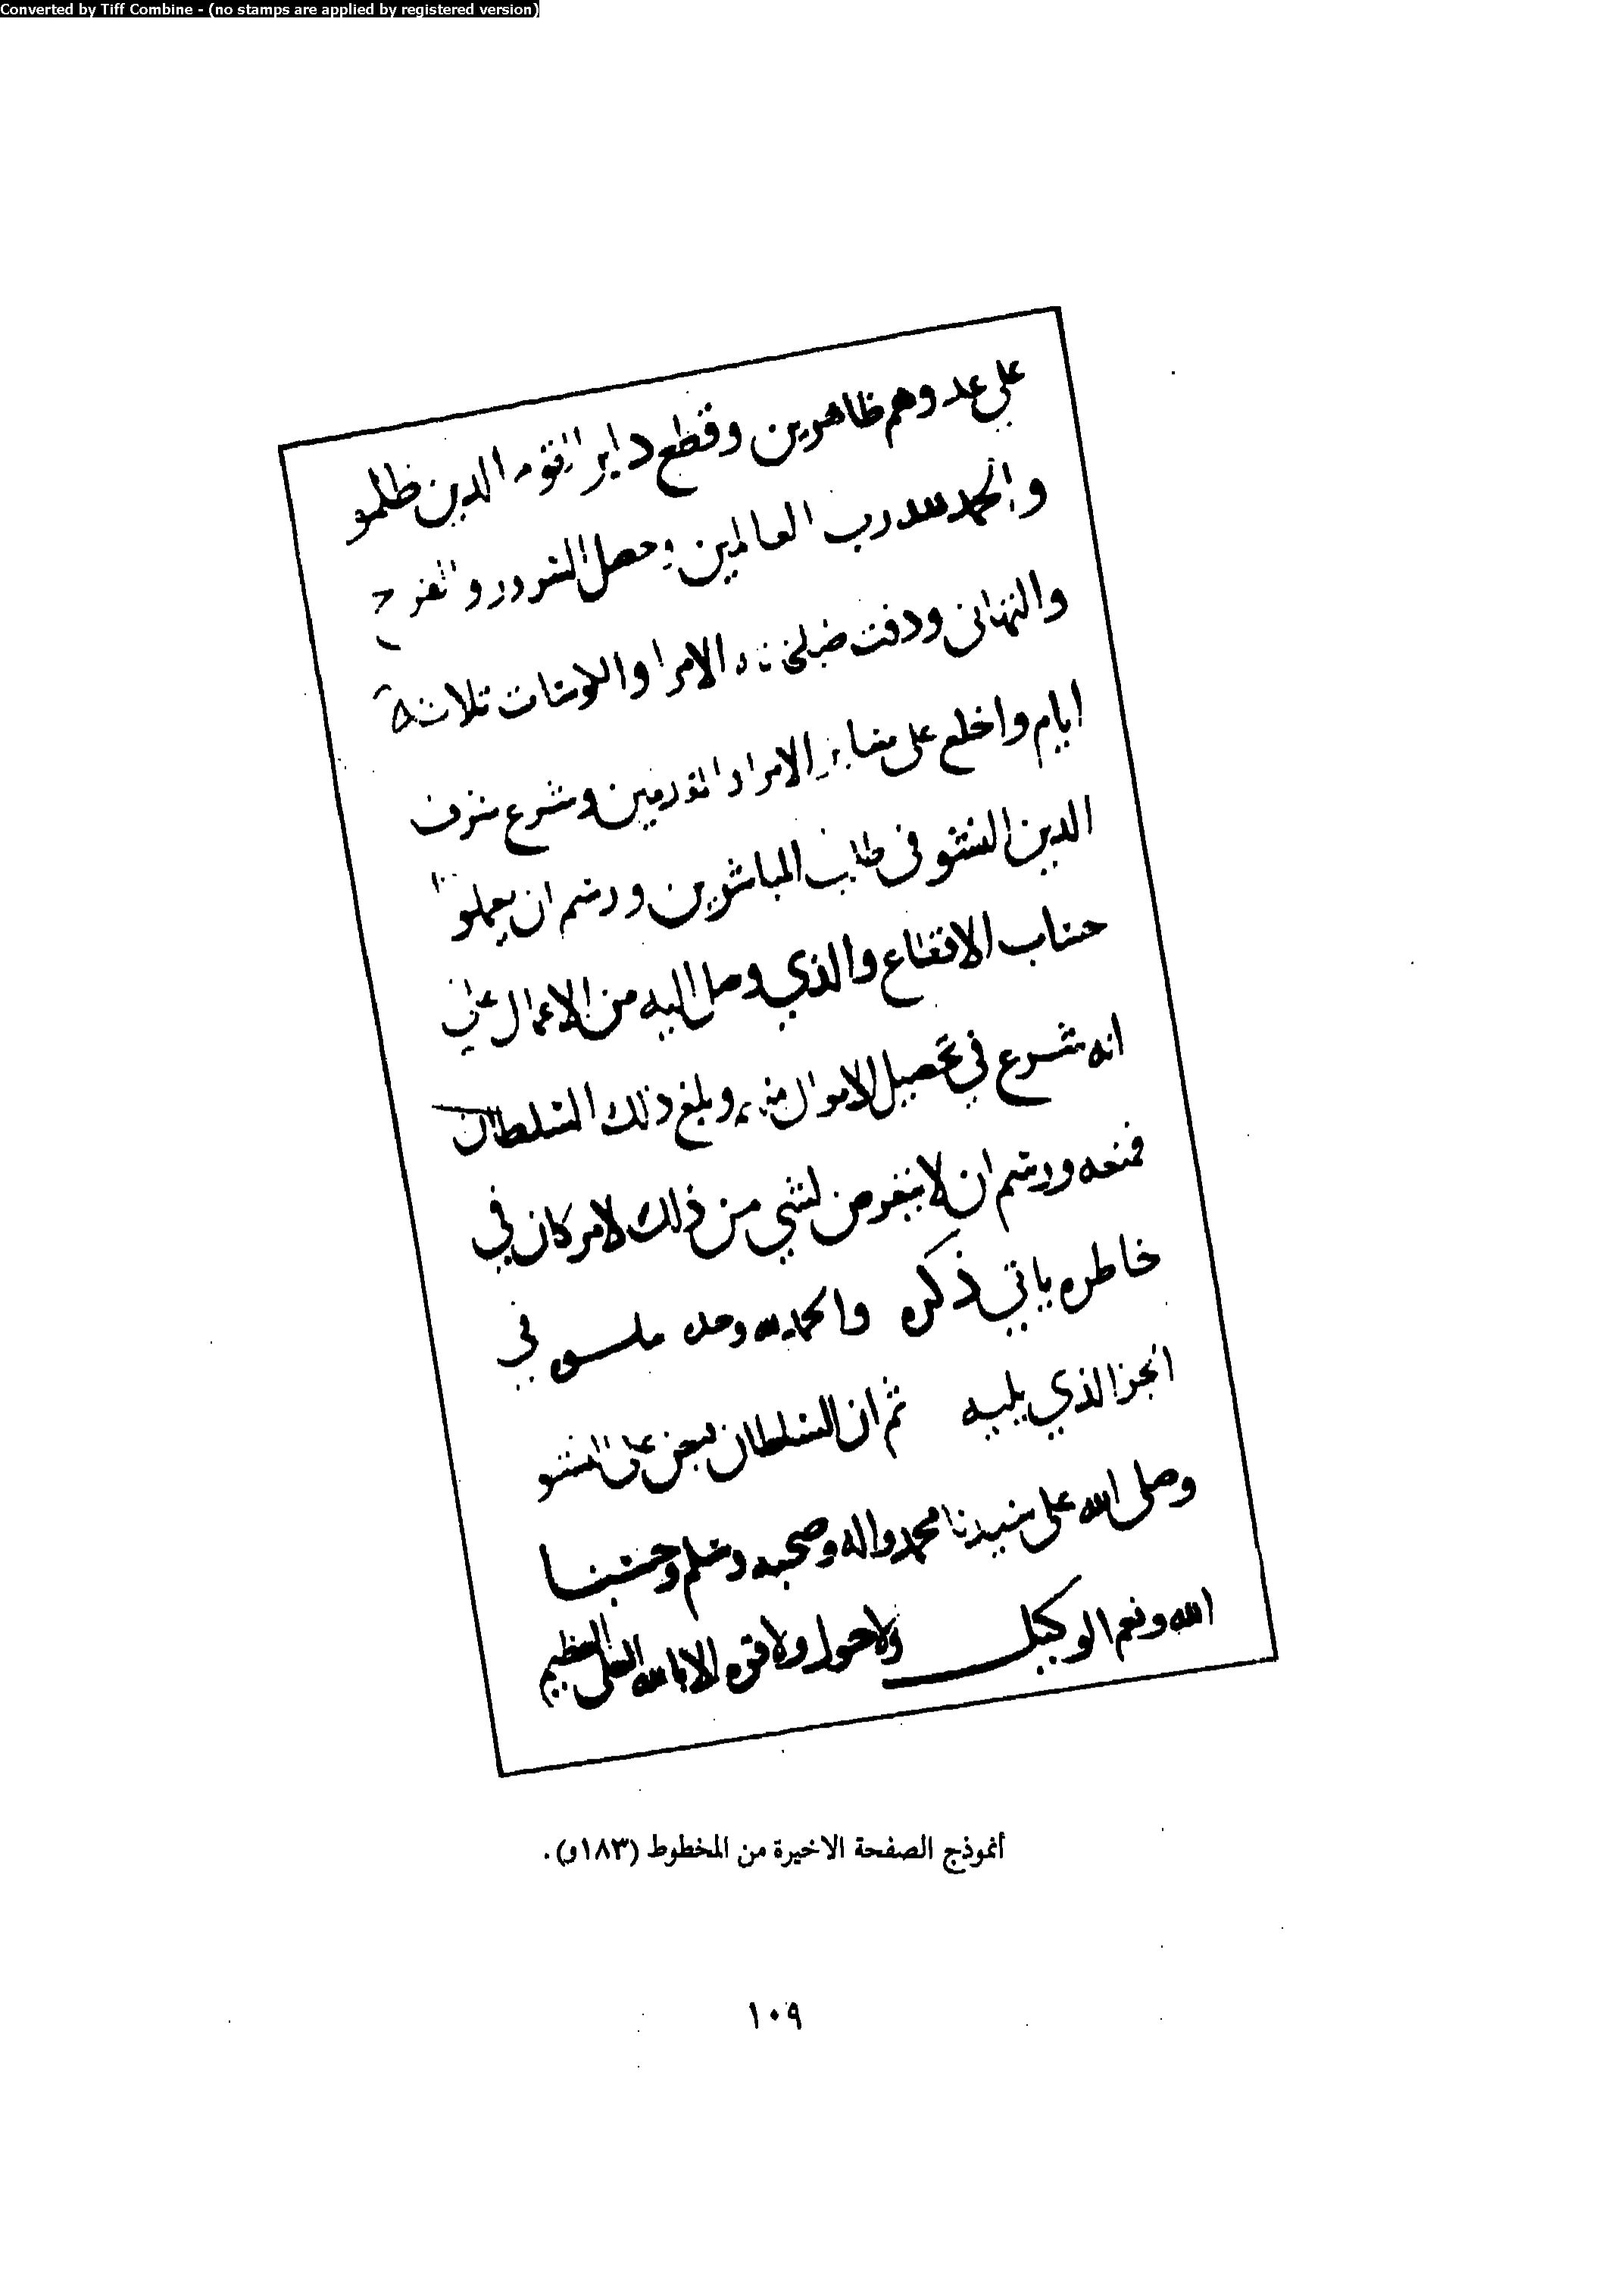 Converted by Tiff Combine - (no stamps are applied by registered version)
على عدوهم ظاهرين وقطع دابر القوم الدين ظلمو
والحمد لله رب العالمين وحصل السرور والفرح
والتهانى ودقت طبلخاناه الامرا والكوسات تلاتة
ايام واخلع على ساير الامرا والمقدمين وشرع شرف
الدين النشو فى طلب المباشرين ورسم ان يعملو
حساب الاقطاع والذي وصل اليه من الاعمال على
انه شرع في تحصيل الاموال منهم وبلغ ذلك السلطان
فمنعه ورسم ان لا يتعرض لشي من ذلك لامر كان في
خاطره ياتي ذكره والحمد لله وحده في
الجز الذي يليه ثم ان السلطان على النشو
وصلى الله على سيدنا محمد واله وصحبه وسلم وحسبنا
الله ونعم الوكيل ولا حول ولا قوه الا بالله العلى العظيم
أنموذج الصفحة الاخيرة من المخطوط (١٨٣و).
١٠٩